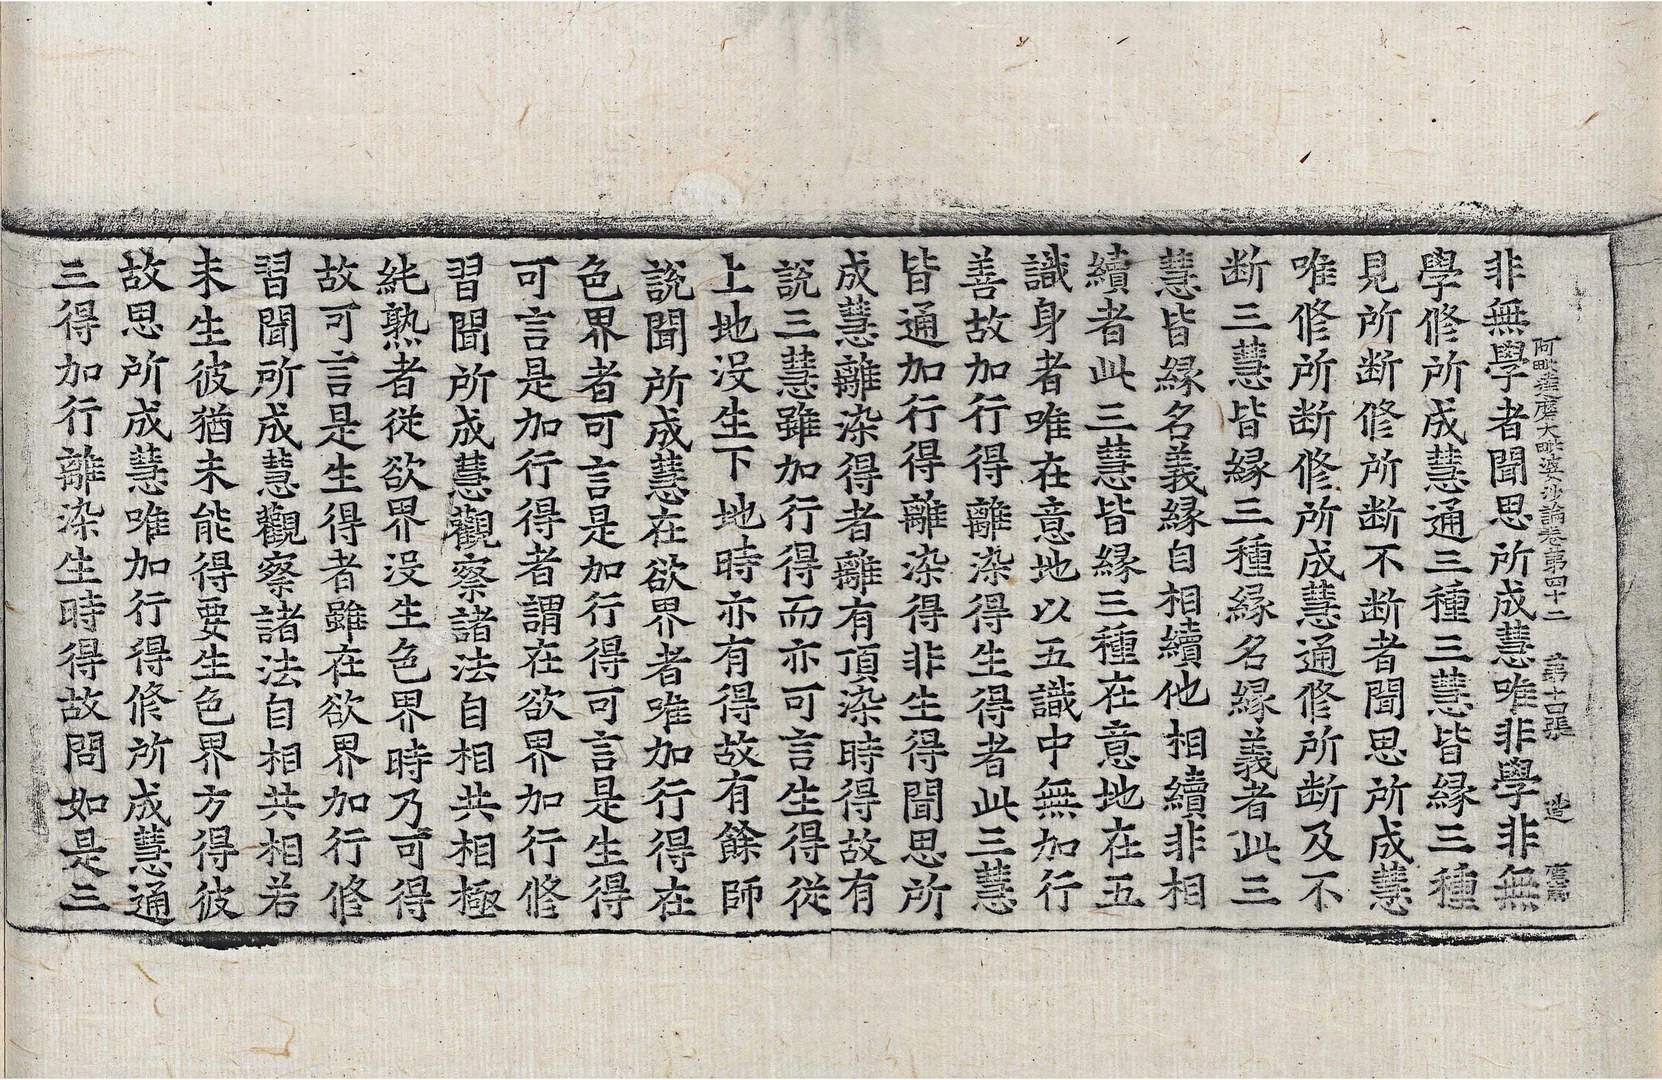 阿毗達磨大毗婆沙論卷第四十二 第十四張 造
非無學者聞思所成慧唯非學非無
學修所成慧通三種三慧皆緣三種
見所断修所断不断者聞思所成慧
唯修所断修所成慧通修所断及不
断三慧皆緣三種緣名緣義者此三
慧皆緣名義緣自相續他相續非相
續者此三慧皆緣三種在意地在五
識身者唯在意地以五識中無加行
善故加行得離染得生得者此三慧
皆通加行得離染得非生得聞思所
成慧離染得者離有頂染時得故有
說三慧雖加行得而亦可言生得從
上地没生下地時亦有得故有餘師
說聞所成慧在欲界者唯加行得在
色界者可言是加行得可言是生得
可言是加行得者謂在欲界加行修
習聞所成慧觀察諸法自相共相極
純熟者從欲界没生色界時乃可得
故可言是生得者雖在欲界加行修
習聞所成慧觀察諸法自相共相若
未生彼猶未能得要生色界方得彼
故思所成慧唯加行得修所成慧通
三得加行離染生時得故問如是三